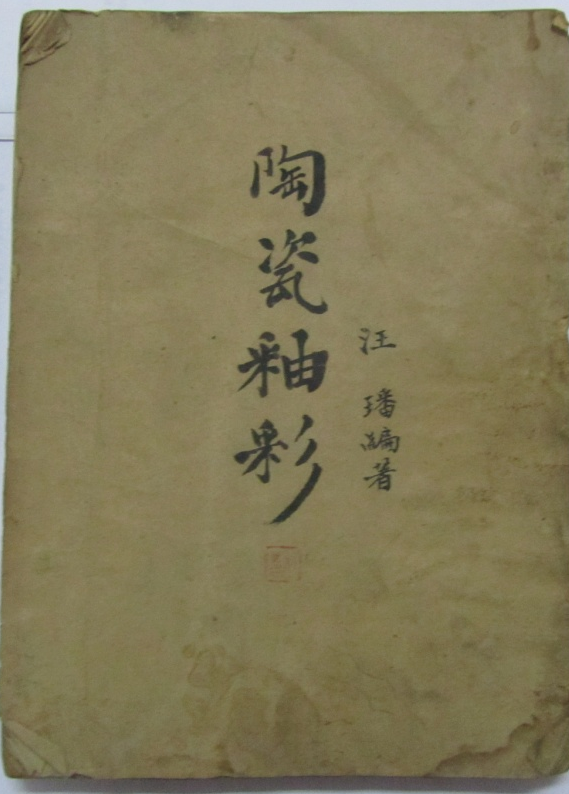 陶瓷釉彩
汪璠編著